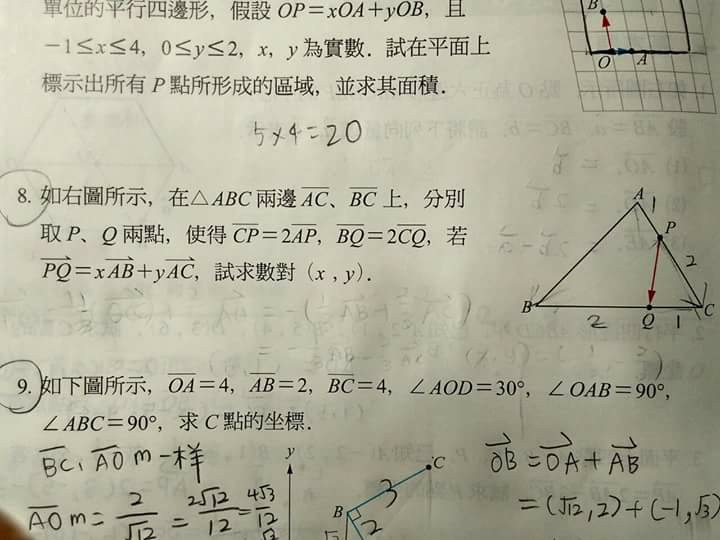 單位的平行四邊形，假設 OP=xOA+yOB，且
−1≤x≤4，0≤y≤2，x，y 為實數．試在平面上
標示出所有 P 點所形成的區域，並求其面積．
B
O A
5×4=20
8. 如右圖所示，在△ABC 兩邊 AC、BC 上，分別
取 P、Q 兩點，使得 CP=2AP，BQ=2CQ，若
PQ=xAB+yAC，試求數對 (x , y)．
A 1
P
2
B C
2 Q 1
9. 如下圖所示，OA=4，AB=2，BC=4，∠AOD=30°，∠OAB=90°，
∠ABC=90°，求 C 點的坐標．
BC、AO m一样
AO m= 2/√12 = 2√12/12 = 4√3/12
y
C
3
B
2
OB = OA + AB
= (√12, 2) + (-1, √3)